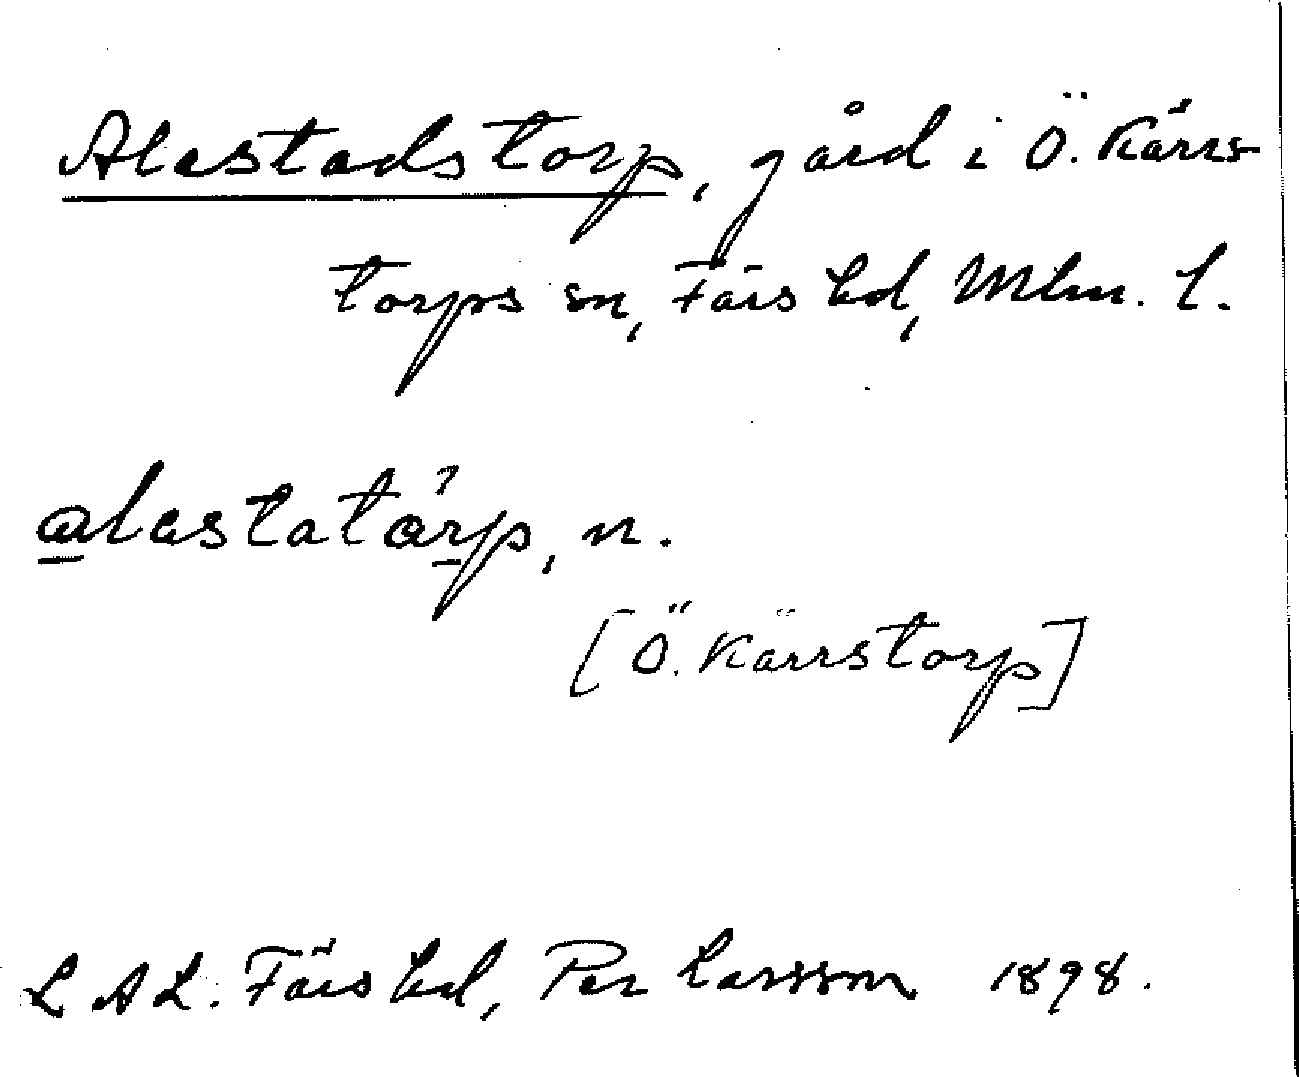 Alestadstorp, gård i Ö. Kärrs-
torps sn, Färs hd, Mlm. l.
alestatårp, n.
[Ö. Kärrstorp]
LAL. Färs hd, Per Larsson 1898.